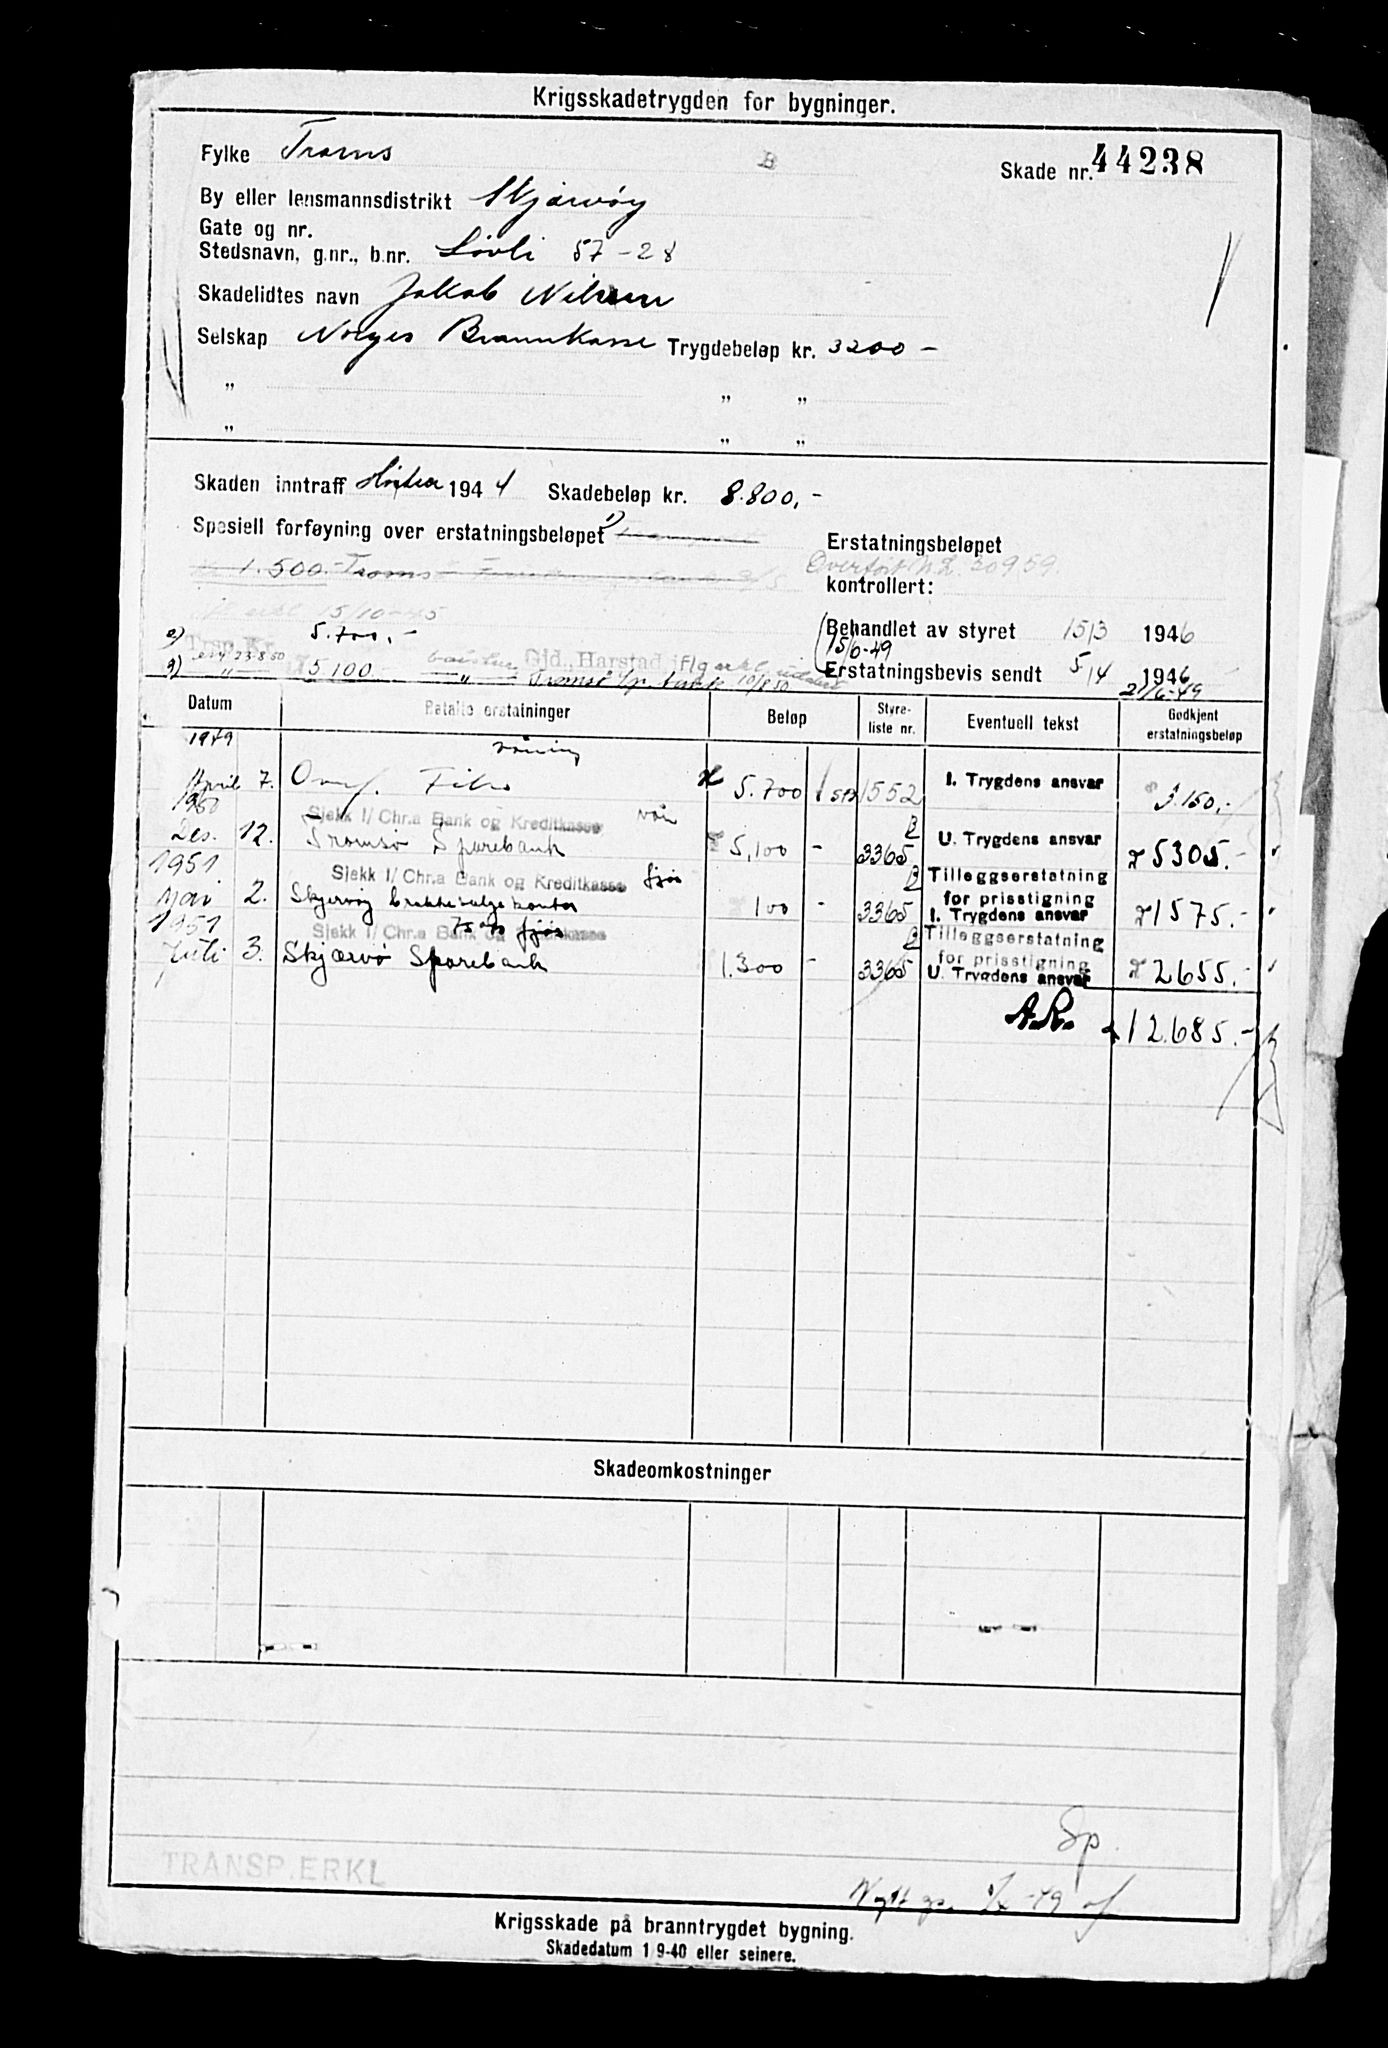 Krigsskadetrygden for bygninger.
Fylke Troms
B
Skade nr. 44238
By eller lensmannsdistrikt Skjærvøy
Gate og nr.
Stedsnavn, g.nr., b.nr. Løvli 57-28
Skadelidtes navn Jakob Nilsen
Selskap Norges Brannkasse Trygdebeløp kr. 3200 -
" " "
" " "
Skaden inntraff Høsten 1944 Skadebeløp kr. 8.800,-
Spesiell forføyning over erstatningsbeløpet 1)
Erstatningsbeløpet
1.500.- Troms
Overført N.L. 20959.
kontrollert:
erkl 15/10-45
2) Trsp. 5.700,-
Behandlet av styret 15/3 1946
15/6-49
23.8.50 Gjd., Harstad iflg erkl.
3) " 5100 " Tromsø 10/8 50
Erstatningsbevis sendt 5/4 1946
21/6-49
Datum Betalte erstatninger Beløp Styre-liste nr. Eventuell tekst Godkjent erstatningsbeløp
1949 våning
April 7. Overf. 5.700 1552 I. Trygdens ansvar 3.150,-
1950 Sjekk 1/ Chr.a Bank og Kreditkasse vån B
Des. 12. Tromsø Sparebank 5,100 - 3365 U. Trygdens ansvar 5305.-
1951 Sjekk 1/ Chr.a Bank og Kreditkasse fjøs B Tilleggserstatning
for prisstigning
Mai 2. Skjervøy brakkesalgskontor 100 - 3365 I. Trygdens ansvar 1575.-
1951 Sjekk 1/ Chr.a Bank og Kreditkasse fjøs B Tilleggserstatning
for prisstigning
Juli 3. Skjærvø Sparebank 1.300 - 3365 U. Trygdens ansvar 2655.-
A.R. 12.685.-
Skadeomkostninger
Sp.
TRANSP.ERKL
Nytt -49
Krigsskade på branntrygdet bygning.
Skadedatum 1 9-40 eller seinere.